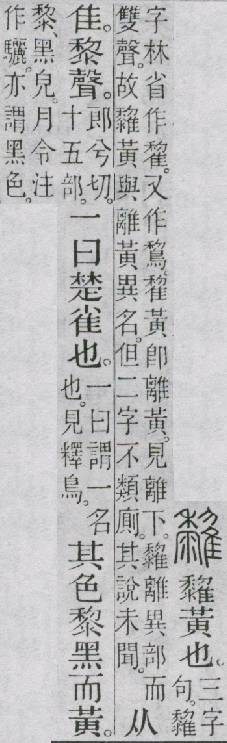 黃也。三字句。
字林省作。又作鵹。黃卽離黃。見離下。離異部而雙聲。故黃與離黃異名。但二字不類廁。其說未聞。从
隹。黎聲。郎兮切。十五部。一曰楚雀也。一曰謂一名也。見釋鳥。其色黎黑而黃。
黎、黑皃。月令注作驪。亦謂黑色。